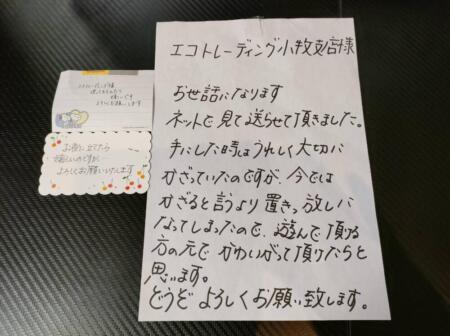 エコトレーディング小牧支店様
お世話になります
ネットで見て送らせて頂きました。
手にした時はうれしく大切に
かざっていたのですが、今では
かざると言うより置きっ放しに
なってしまったので、遊んで頂ける
方の元で かわいがって頂けたらと
思います。
どうぞ よろしくお願い致します。
使ってもらえたら
嬉しいです
よろしくお願いします
お役に立てたら
嬉しいのですが…
よろしくお願いいたします